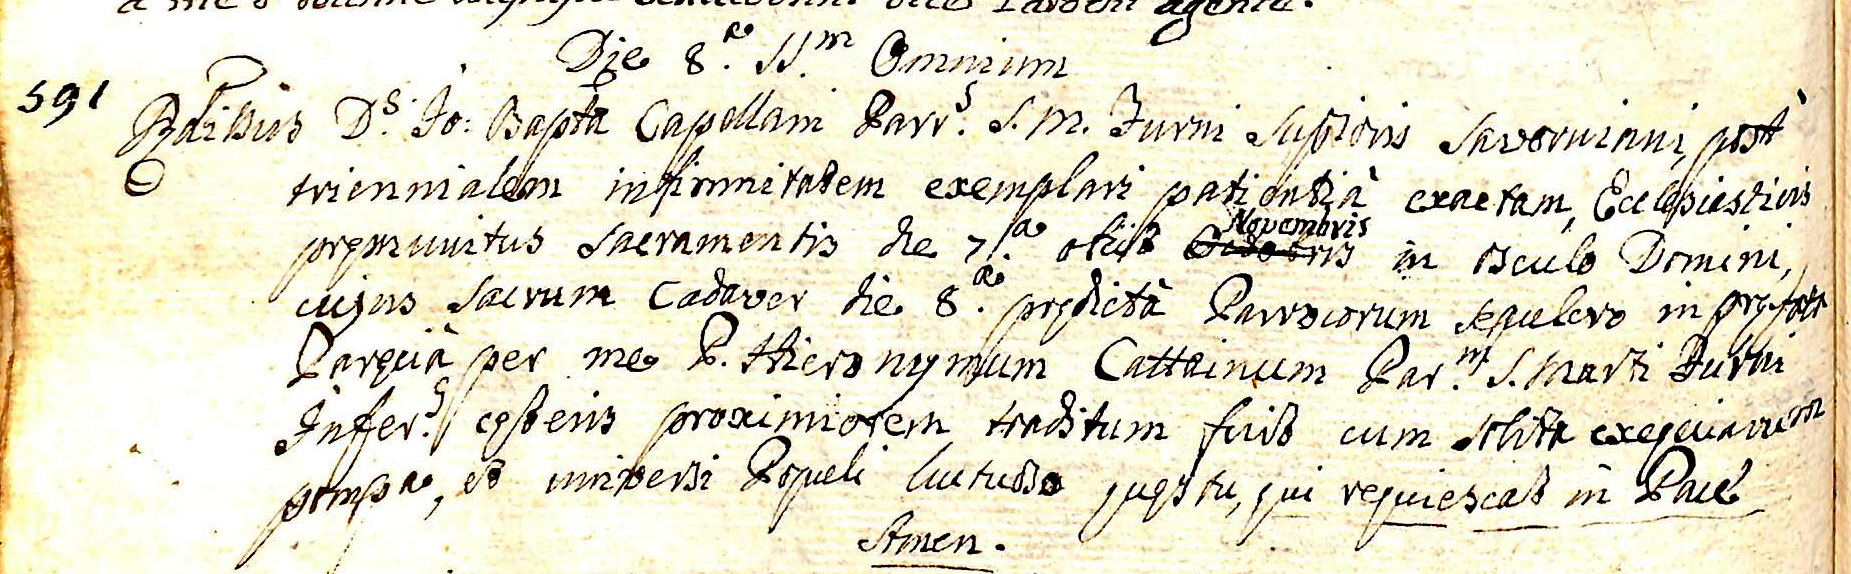 a me
agente.
Die 8.a SS.m Omnium
591
R.dissimus D.s Jo: Bapta Capellani Parr.s S. M. Furni Superioris Savorniani, post
triennialem infirmitatem exemplari patientià exactam, Ecclesiasticis
premunitus Sacramentis die 7.a obiit Octobris Novembris in osculo Domini,
cujus Sacrum Cadaver die 8.a predictà Parrocorum sepulcro in prefata
Parquià per me P. Hieronymum Cattainum Par.m S. Marti Furni
Infer.s ceteris proximiorem traditum fuit cum solita exequiarum
pompa, et universi Populi luctuoso questu, qui requiescat in Pace
Amen.